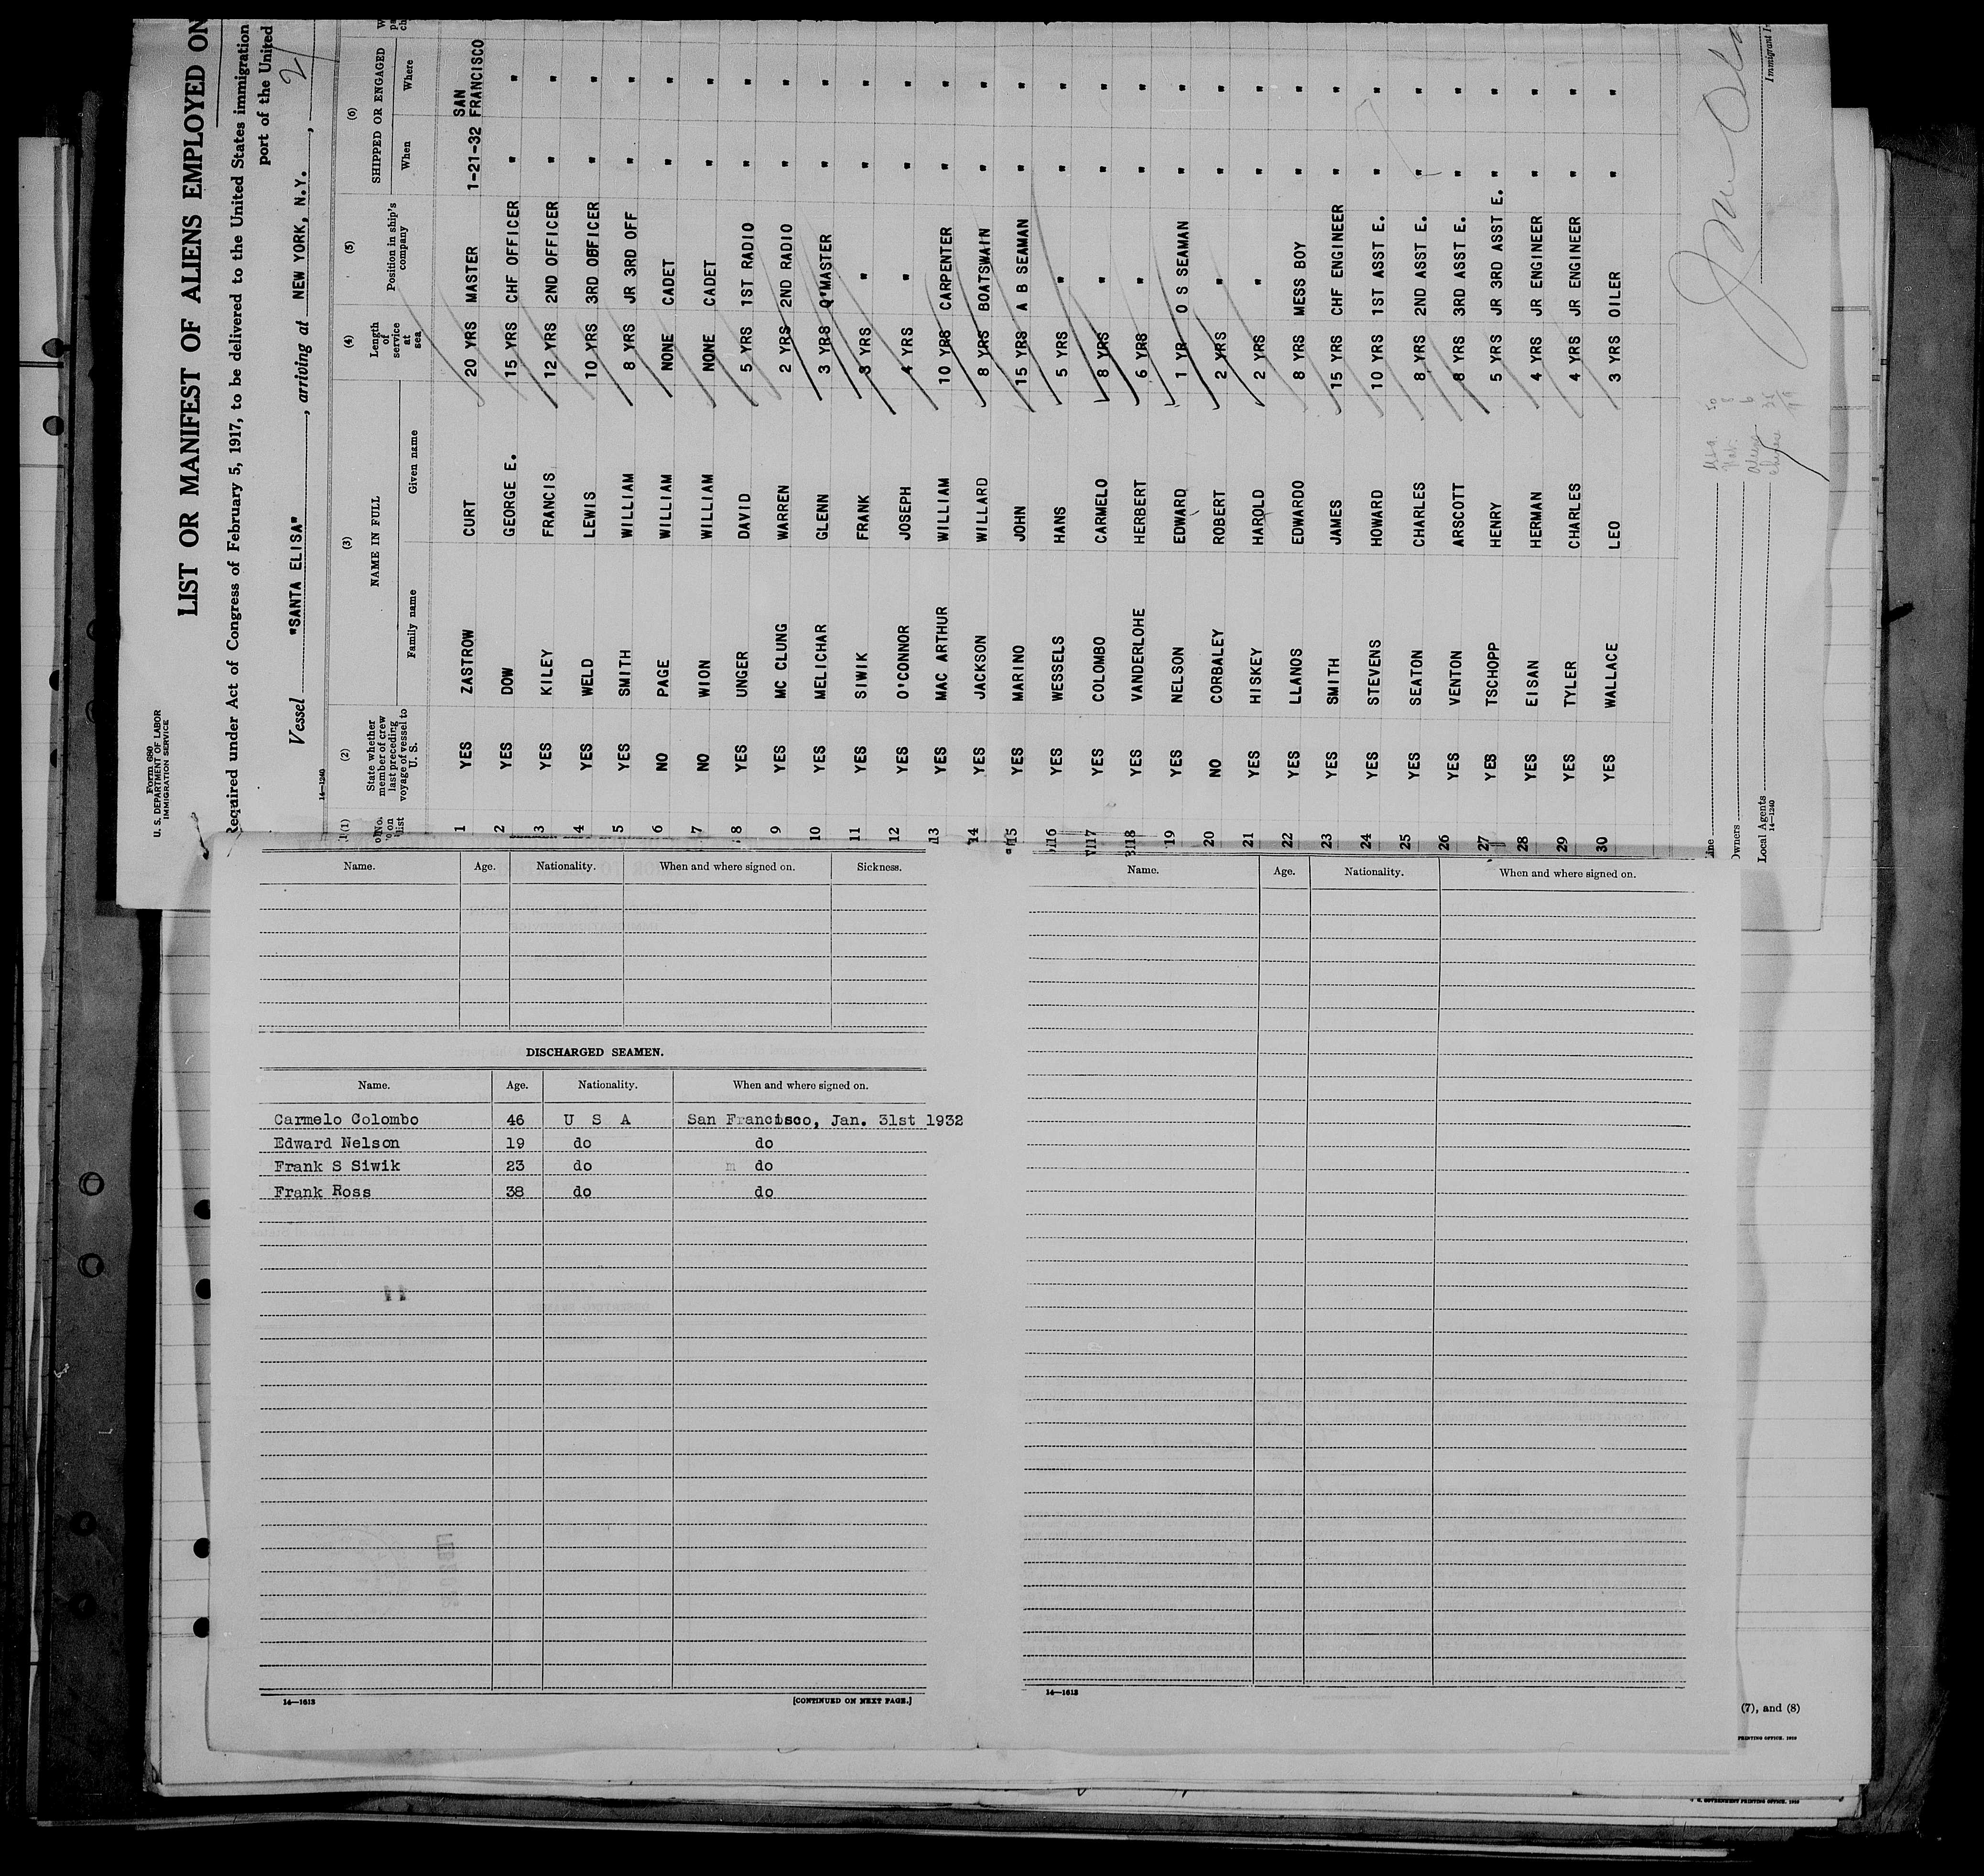 Form 680
U. S. DEPARTMENT OF LABOR
IMMIGRATION SERVICE
LIST OR MANIFEST OF ALIENS EMPLOYED ON
Required under Act of Congress of February 5, 1917, to be delivered to the United States immigration
port of the United
Vessel "SANTA ELISA", arriving at NEW YORK, N.Y.,
14—1240
(1) (2) (3) (4) (5) (6)
No. on list
State whether member of crew last preceding voyage of vessel to U. S.
NAME IN FULL
Family name Given name
Length of service at sea
Position in ship's company
SHIPPED OR ENGAGED
When Where
1 YES ZASTROW CURT 20 YRS MASTER 1-21-32 SAN FRANCISCO
2 YES DOW GEORGE E. 15 YRS CHF OFFICER " "
3 YES KILEY FRANCIS 12 YRS 2ND OFFICER " "
4 YES WELD LEWIS 10 YRS 3RD OFFICER " "
5 YES SMITH WILLIAM 8 YRS JR 3RD OFF " "
6 NO PAGE WILLIAM NONE CADET " "
7 NO WION WILLIAM NONE CADET " "
8 YES UNGER DAVID 5 YRS 1ST RADIO " "
9 YES MC CLUNG WARREN 2 YRS 2ND RADIO " "
10 YES MELICHAR GLENN 3 YRS Q'MASTER " "
11 YES SIWIK FRANK 3 YRS " " "
12 YES O'CONNOR JOSEPH 4 YRS " " "
13 YES MAC ARTHUR WILLIAM 10 YRS CARPENTER " "
14 YES JACKSON WILLARD 8 YRS BOATSWAIN " "
15 YES MARINO JOHN 15 YRS A B SEAMAN " "
16 YES WESSELS HANS 5 YRS " " "
17 YES COLOMBO CARMELO 8 YRS " " "
18 YES VANDERLOHE HERBERT 6 YRS " " "
19 YES NELSON EDWARD 1 YR O S SEAMAN " "
20 NO CORBALEY ROBERT 2 YRS " " "
21 YES HISKEY HAROLD 2 YRS " " "
22 YES LLANOS EDWARDO 8 YRS MESS BOY " "
23 YES SMITH JAMES 15 YRS CHF ENGINEER " "
24 YES STEVENS HOWARD 10 YRS 1ST ASST E. " "
25 YES SEATON CHARLES 8 YRS 2ND ASST E. " "
26 YES VENTON ARSCOTT 8 YRS 3RD ASST E. " "
27 YES TSCHOPP HENRY 5 YRS JR 3RD ASST E. " "
28 YES EISAN HERMAN 4 YRS JR ENGINEER " "
29 YES TYLER CHARLES 4 YRS JR ENGINEER " "
30 YES WALLACE LEO 3 YRS OILER " "
Owners
Local Agents
14—1240
Immigrant
Name. Age. Nationality. When and where signed on. Sickness.
DISCHARGED SEAMEN.
Name. Age. Nationality. When and where signed on.
Carmelo Colombo 46 U S A San Francisco, Jan. 31st 1932
Edward Nelson 19 do do
Frank S Siwik 23 do do
Frank Ross 38 do do
14—1613
[CONTINUED ON NEXT PAGE.]
Name. Age. Nationality. When and where signed on.
14—1613
(7), and (8)